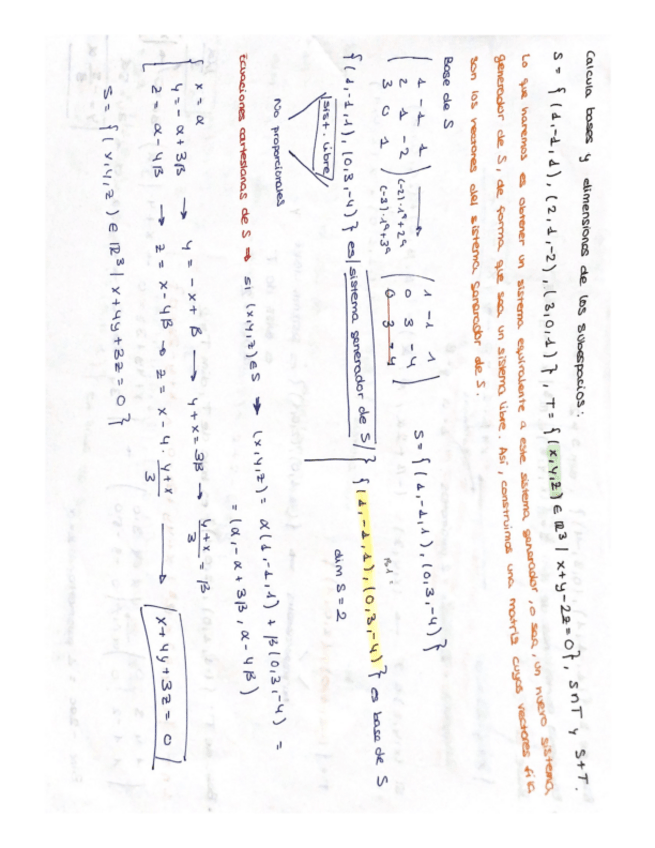 Calcula bases y dimensiones de los subespacios:
S = {(1,-1,1), (2,1,-2), (3,0,1)}, T = {(x,y,z) ∈ ℝ³ / x+y-2z=0}, S∩T y S+T.
Lo que haremos es obtener un sistema equivalente a este sistema generador, o sea, un nuevo sistema
generador de S, de forma que sea un sistema libre. Así, construimos una matriz cuyos vectores fila
son los vectores del sistema generador de S.
Base de S
( 1 -1 1 ) → ( 1 -1 1 ) S = {(1,-1,1), (0,3,-4)}
( 2 1 -2 ) (-2)·1ª+2ª ( 0 3 -4 )
( 3 0 1 ) (-3)·1ª+3ª ( 0 3 -4 )
{(1,-1,1), (0,3,-4)} es sistema generador de S } {(1,-1,1), (0,3,-4)} es base de S
sist. libre dim S = 2
No proporcionales
Ecuaciones cartesianas de S ⇒ si (x,y,z) ∈ S → (x,y,z) = α(1,-1,1) + β(0,3,-4) =
= (α, -α+3β, α-4β)
x = α
y = -α+3β → y = -x+β → y+x = 3β → y+x/3 = β
z = α-4β → z = x-4β → z = x-4· y+x/3 → x+4y+3z = 0
S = {(x,y,z) ∈ ℝ³ / x+4y+3z=0}